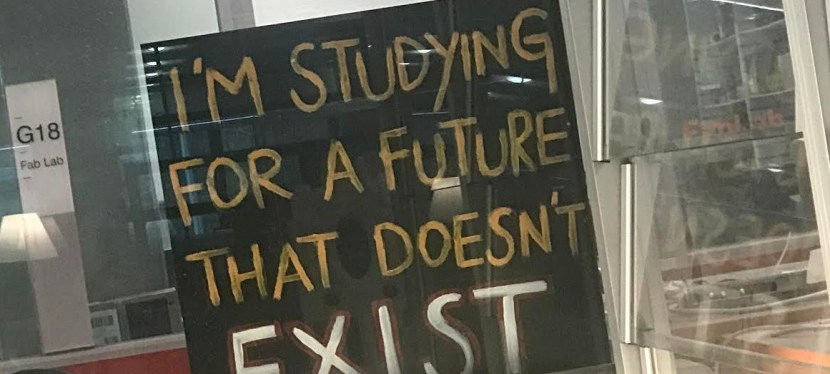 G18
Fab Lab
I'M STUDYING
FOR A FUTURE
THAT DOESN'T
EXIST